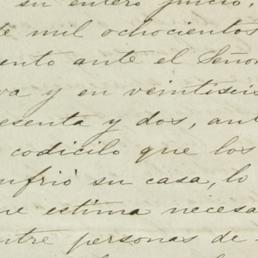 su entero juicio,
te mil ochocientos
ento ante el Seño
va y en veintiseis
esenta y dos, ant
codicilo que los
ufrió su casa, lo
ue estima necesa
ntre personas de